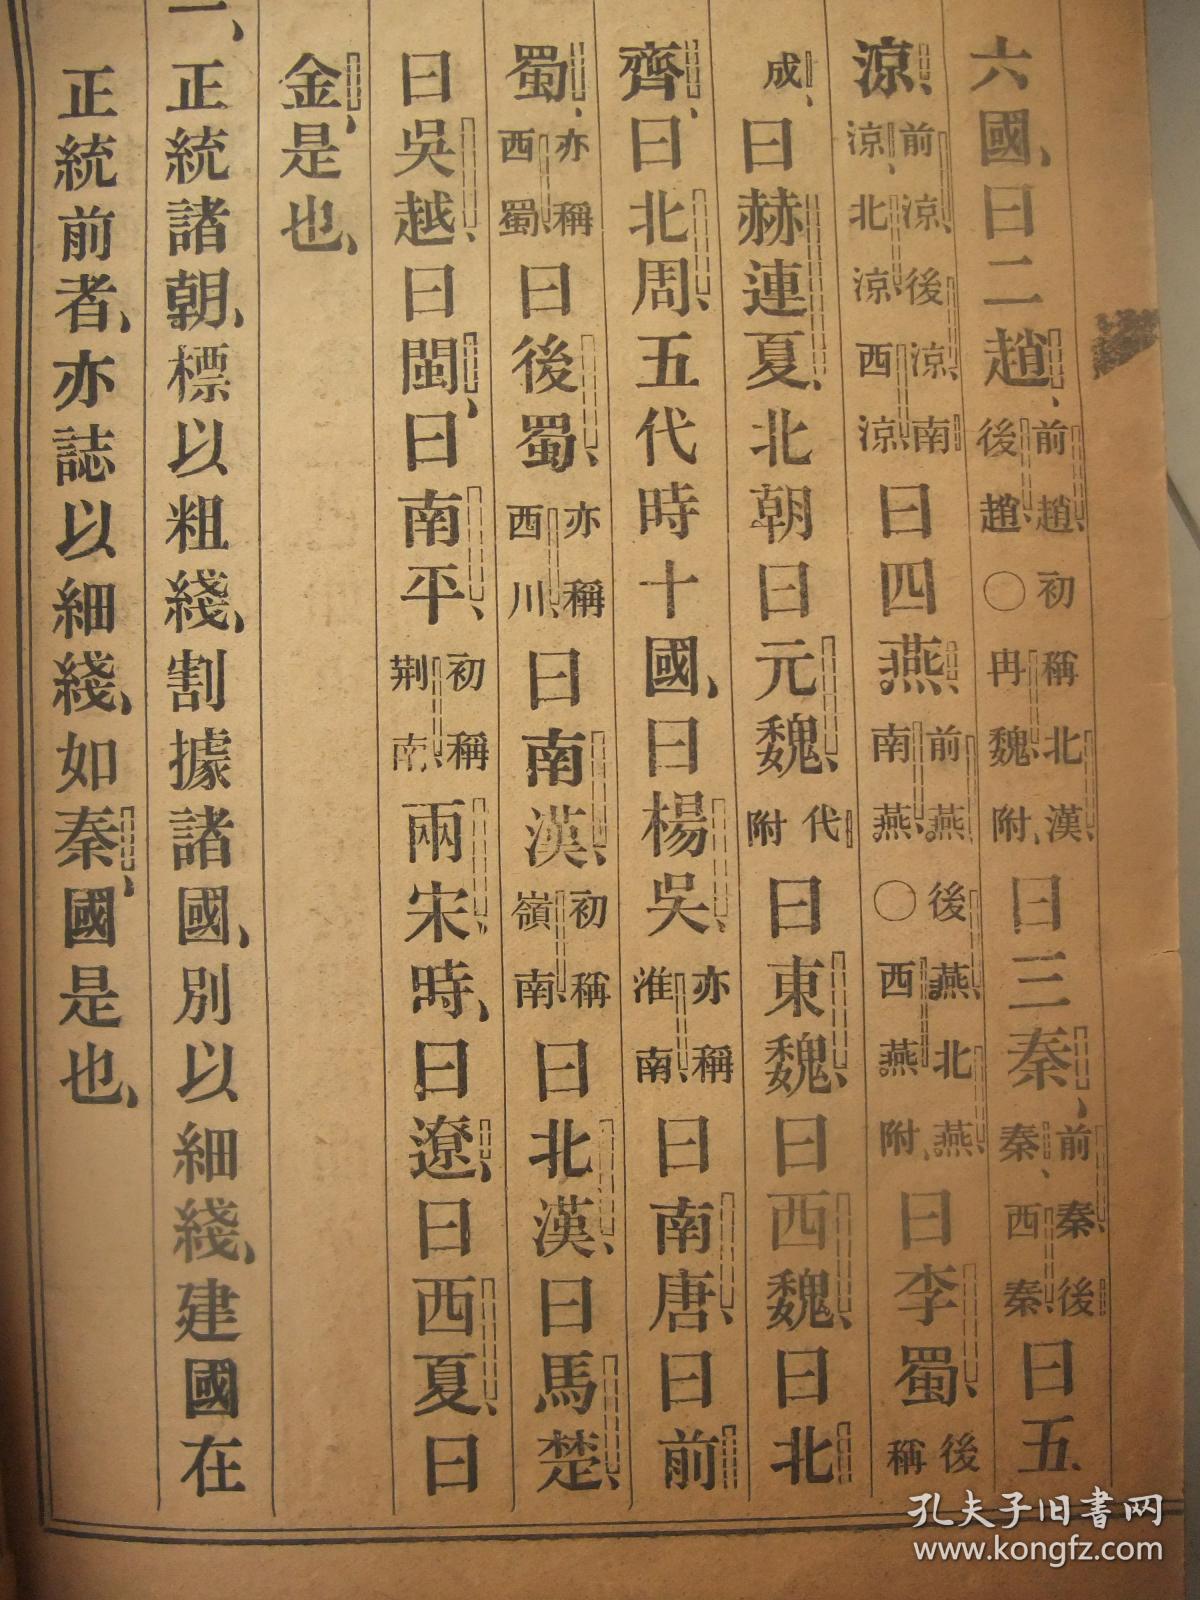 六國、曰二趙、前趙、初稱北漢、後趙、〇冉魏附、曰三秦、前秦、後秦、西秦、曰五
涼、前涼、後涼、南涼、北涼、西涼、曰四燕、前燕、後燕、北燕、南燕、〇西燕附、曰李蜀、後稱
成、曰赫連夏、北朝曰元魏、代附曰東魏、曰西魏、曰北
齊、曰北周、五代時十國、曰楊吳、亦稱淮南、曰南唐、曰前
蜀、亦稱西蜀、曰後蜀、亦稱西川、曰南漢、初稱嶺南、曰北漢、曰馬楚、
曰吳越、曰閩、曰南平、初稱荆南、兩宋時、曰遼、曰西夏、曰
金、是也、
一、正統諸朝、標以粗綫、割據諸國、別以細綫、建國在
正統前者、亦誌以細綫、如秦、國是也、
孔夫子旧書网
www.kongfz.com